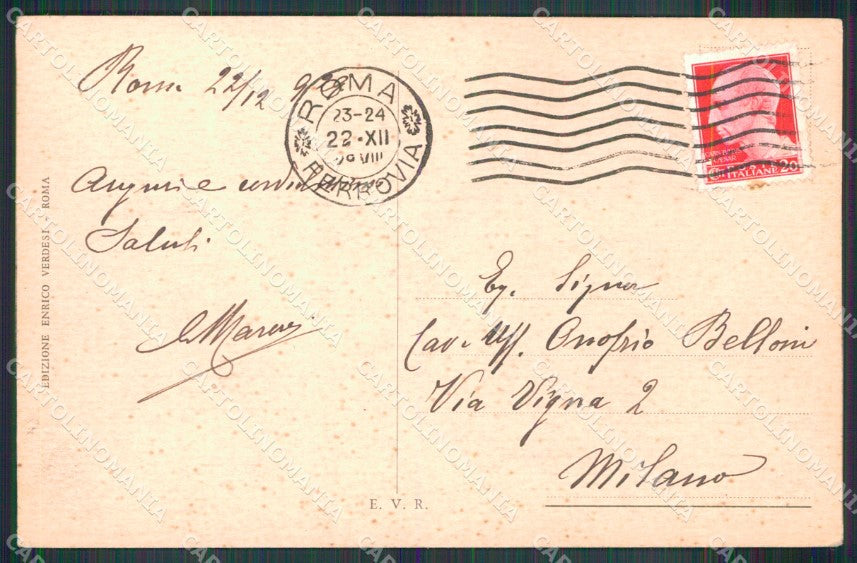 Roma 22/12 929
ROMA
FERROVIA
23-24
22·XII
29 VIII
Auguri e cordialissimi
Saluti
EDIZIONE ENRICO VERDESI - ROMA
ITALIANE 20
Eg. Signor
Cav. Uff. Onofrio Belloni
Via Vigna 2
Milano
E. V. R.
CARTOLINOMANIA